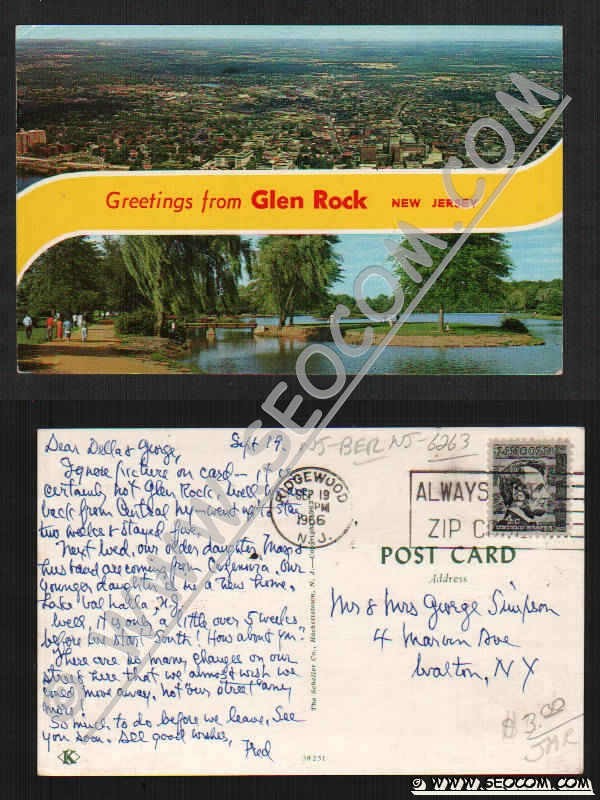 Greetings from Glen Rock NEW JERSEY
WWW.SEOCOM.COM
Dear Della & George, Sept 19,
Ignore picture on card - it is
certainly not Glen Rock. Well
back from Central NY - went up to stay
two weeks & stayed five.
Next Wed. our older daughter, Mary &
husband are coming from California. Our
younger daughter a new home,
Lake Valhalla, NJ.
Well, it is only a little over 5 weeks
before we start South! How about you?
There are so many changes on our
street here that we almost wish we
could move away, not our street any
more.
So much to do before we leave. See
you soon. All good wishes,
Fred
NJ-BER NJ-6263
RIDGEWOOD
SEP 19
PM
1966
N.J.
ALWAYS
ZIP C
LINCOLN
UNITED STATES
POST CARD
Address
Mr & Mrs George Simpson
4 Marvin Ave
Walton, NY
$3.00
JMR
The Scheller Co., Hackettstown, N. J.
K
38251
© WWW.SEOCOM.COM